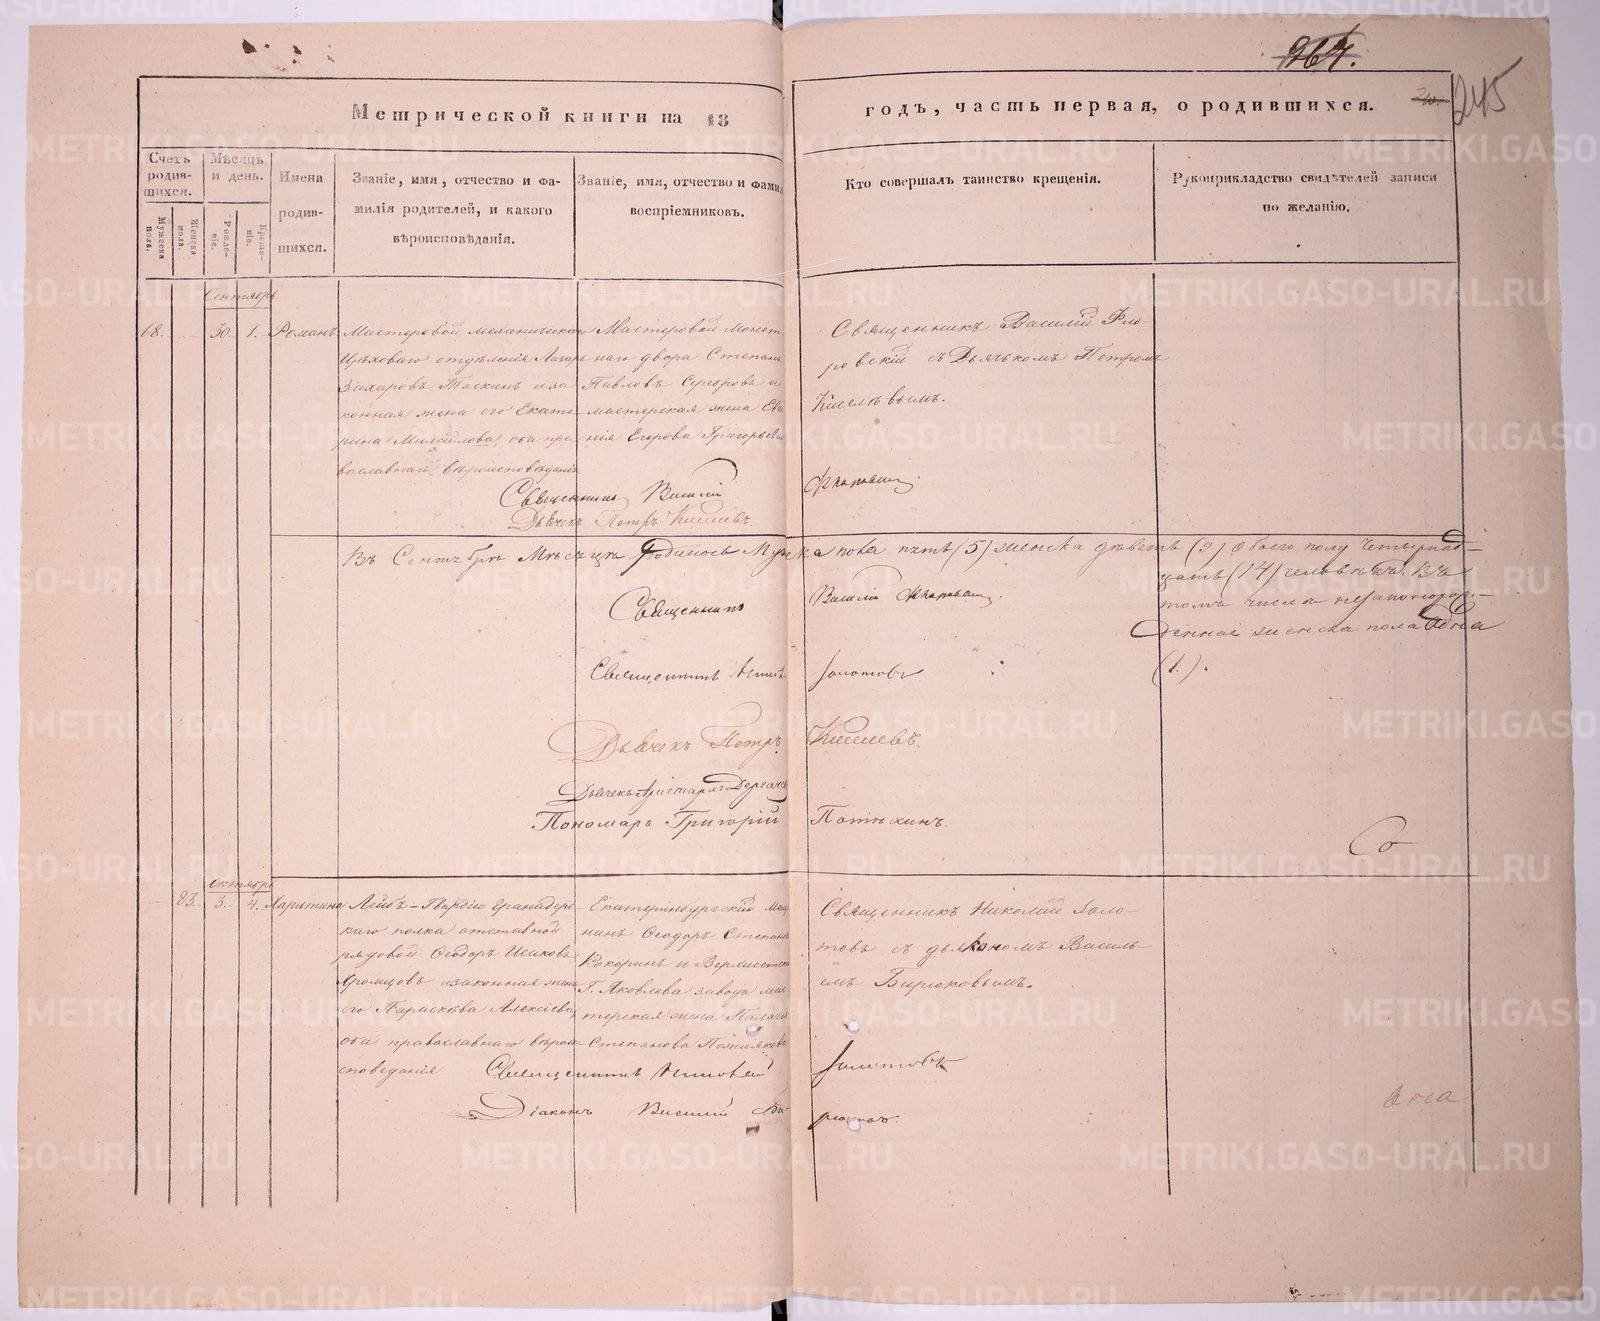 264.
245
Метрической книги на 18
годъ, часть первая, о родившихся.
Счетъ родив-шихся.
Мужеска пола.
Женска пола.
Мѣсяцъ и день.
Рожде-ніе.
Креще-ніе.
Имена родив-шихся.
Званіе, имя, отчество и фа-
милія родителей, и какого
вѣроисповѣданія.
Званіе, имя, отчество и фами
воспріемниковъ.
Кто совершалъ таинство крещенія.
Рукоприкладство свидѣтелей записи
по желанію.
Сентябрь
68. 30. 1. Романъ
Мастеровой механическаго
Цѣховаго отдѣленія Лазарь
Захаровъ Таскинъ и за
конная жена его Екате-
рина Михайлова, оба пра-
вославнаго вѣроисповѣданія
Мастеровой Монет
наго двора Степанъ
Павловъ Серебровъ и
мастерская жена Евге
нія Егорова Григорьева
Священникъ Василій Фло-
ровскій съ Дьячькомъ Петромъ
Киселевымъ.
Священникъ Василій Флоровскій.
Дьячекъ Петръ Киселевъ.
Въ Сентябрѣ Мѣсяцѣ Родилось Мужеска пола пять (5) женска девять (9) Обоего полу Четырнад-
цать (14) человѣкъ. Въ
томъ числѣ незаконорож-
денная женска пола Одна
(1).
Священникъ Василій Флоровскій.
Священникъ Николай Золотовъ
Дьячекъ Петръ Киселевъ.
Дьячекъ Аристархъ Дерганъ
Пономарь Григорій Потѣхинъ.
Со
Октябрь
83. 3. 4. Харитина
Лейбъ-Гвардіи Гранадерс-
каго полка отставной
рядовой Ѳеодоръ Исаковъ
Хромцовъ и законная жена
его Параскева Алексіева,
оба православнаго вѣрои-
сповѣданія
Екатеринбургскій Мѣщ
нинъ Ѳеодоръ Степановъ
Кокоринъ и Верхисетска
Г. Яковлева завода мас
терская жена Палагія
Степанова Познякова
Священникъ Николай Золо-
товъ съ дьякономъ Василь-
емъ Бирюковымъ.
Священникъ Николай Золотовъ
Діаконъ Василій Би-рюковъ.